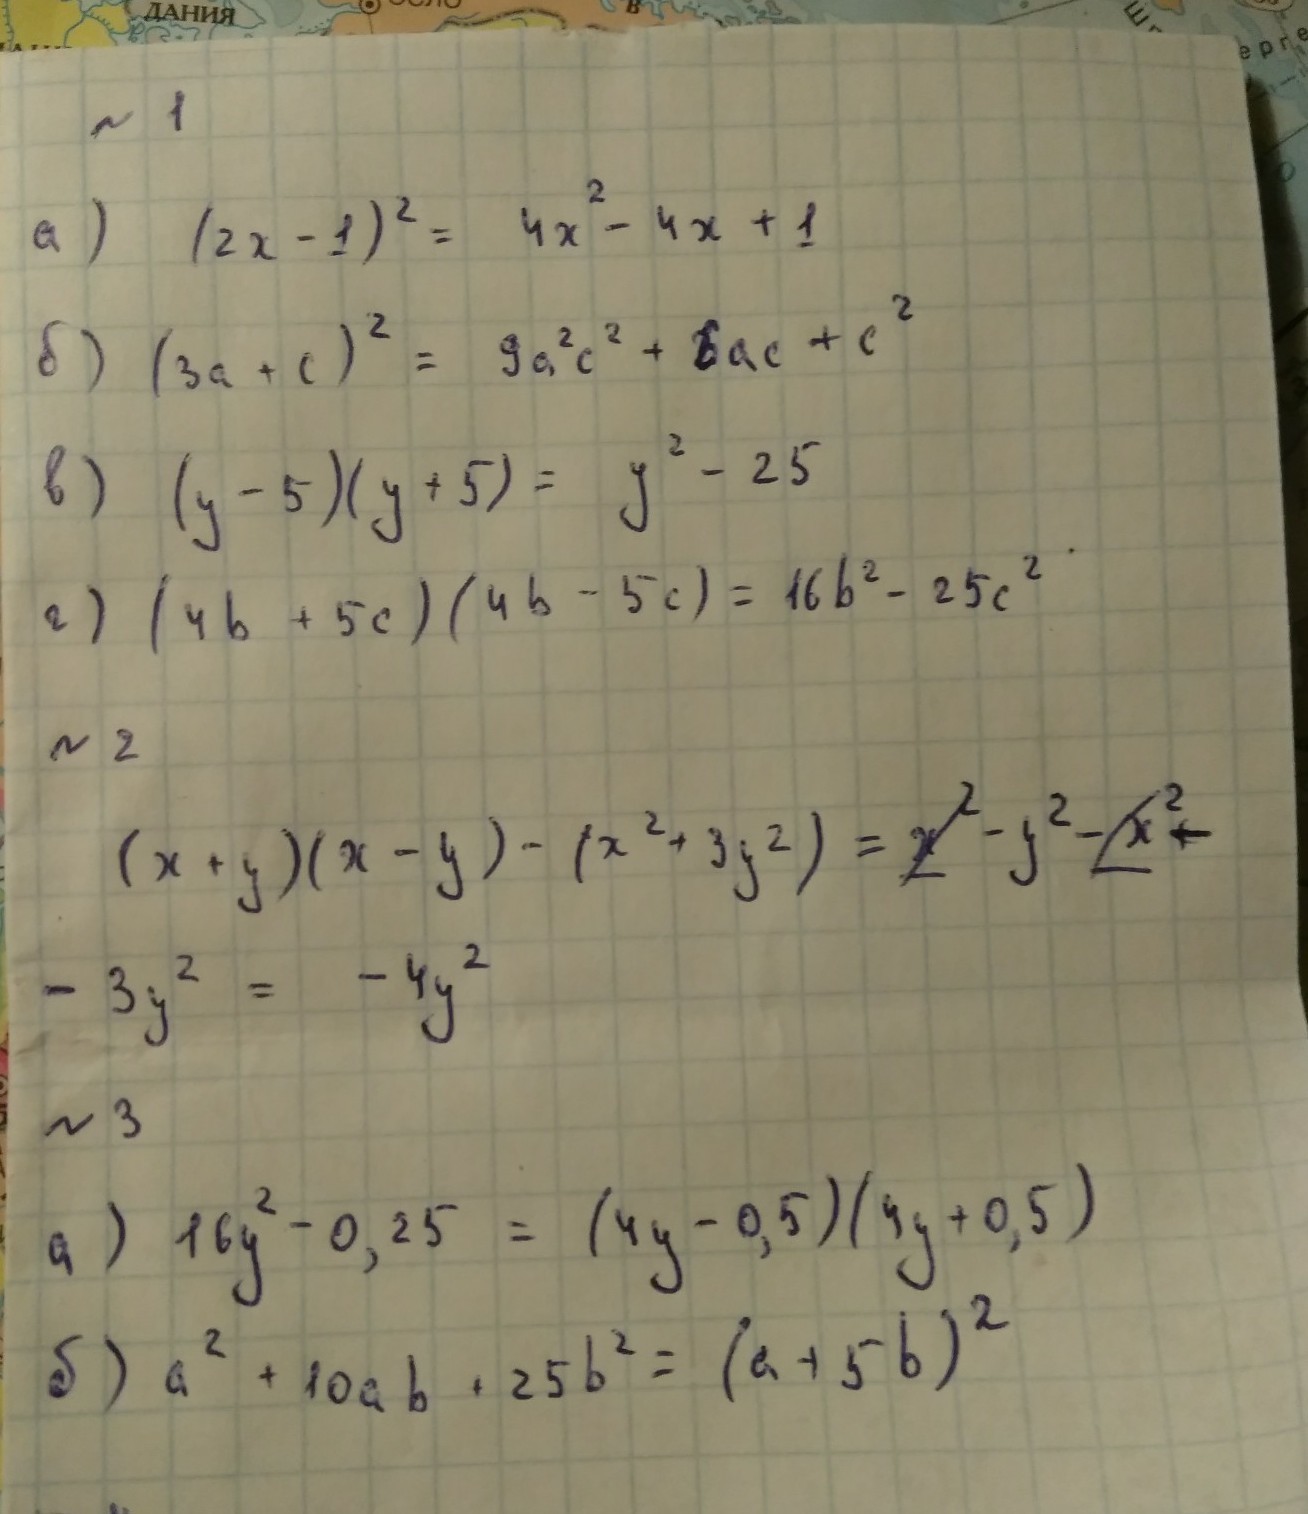 ДАНИЯ
ОСЛО
В
Ш
ерге
~ 1
а) (2x - 1)² = 4x² - 4x + 1
б) (3a + c)² = 9a²c² + 6ac + c²
в) (y - 5)(y + 5) = y² - 25
г) (4b + 5c)(4b - 5c) = 16b² - 25c²
~ 2
(x + y)(x - y) - (x² + 3y²) = x² - y² - x² -
- 3y² = - 4y²
~ 3
а) 16y² - 0,25 = (4y - 0,5)(4y + 0,5)
б) a² + 10ab + 25b² = (a + 5b)²